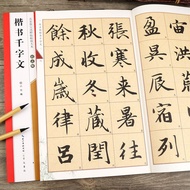 楷书千字文
盈昃辰宿列
張寒來暑往
秋收冬藏閏
餘成歲律呂